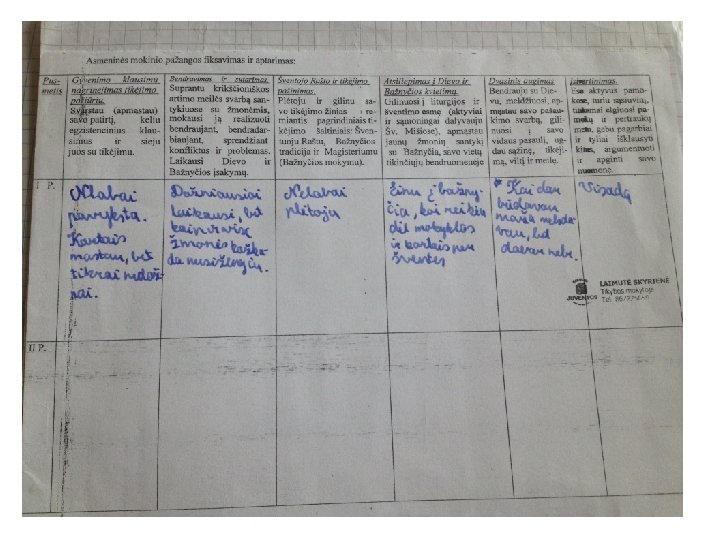 Asmeninės mokinio pažangos fiksavimas ir aptarimas:
Pus-
metis
Gyvenimo klausimų
nagrinėjimas tikėjimo
požiūriu.
Svarstau (apmąstau)
savo patirtį, keliu
egzistencinius klau-
simus ir sieju
juos su tikėjimu.
Bendravimas ir sutarimas.
Suprantu krikščioniškos
artimo meilės svarbą san-
tykiuose su žmonėmis,
mokausi ją realizuoti
bendraujant, bendradar-
biaujant, sprendžiant
konfliktus ir problemas.
Laikausi Dievo ir
Bažnyčios įsakymų.
Šventojo Rašto ir tikėjimo
pažinimas.
Plėtoju ir gilinu sa-
vo tikėjimo žinias re-
miantis pagrindiniais ti-
kėjimo šaltiniais: Šven-
tuoju Raštu, Bažnyčios
tradicija ir Magisteriumu
(Bažnyčios mokymu).
Atsiliepimas į Dievo ir
Bažnyčios kvietimą.
Gilinuosi į liturgijos ir
šventimo esmę (aktyviai
ir sąmoningai dalyvauju
Šv. Mišiose), apmąstau
jaunų žmonių santykį
su Bažnyčia, savo vietą
tikinčiųjų bendruomenėje
Dvasinis augimas.
Bendrauju su Die-
vu, meldžiuosi, ap-
mąstau savo pašau-
kimo svarbą, gili-
nuosi į savo
vidaus pasaulį, ug-
dau sąžinę, tikėji-
mą, viltį ir meilę.
Įsivertinimas.
Esu aktyvus pamo-
kose, turiu sąsiuvinį,
tinkamai elgiuosi pa-
mokų ir pertraukų
metu, gebu pagarbiai
ir tyliai išklausyti
kitus, argumentuoti
ir apginti savo
nuomonę.
I P.
Nelabai
pavyksta.
Kartais
mastau, bet
tikrai nedaž-
nai.
Dažniausiai
laikausi, bet
kaip ir visi
žmonės kažka-
da nusižengiu.
Nelabai
plėtoju
Einu į bažny-
čia, kai reikia
dėl mokyklos
ir kartais per
šventes
Kai dar
būdavau
maža melsda-
vau, bet
dabar nebe.
Visada
LAIMUTĖ SKYRIENĖ
Tikybos mokytoja
JUVENTOS
Tel.
II P.